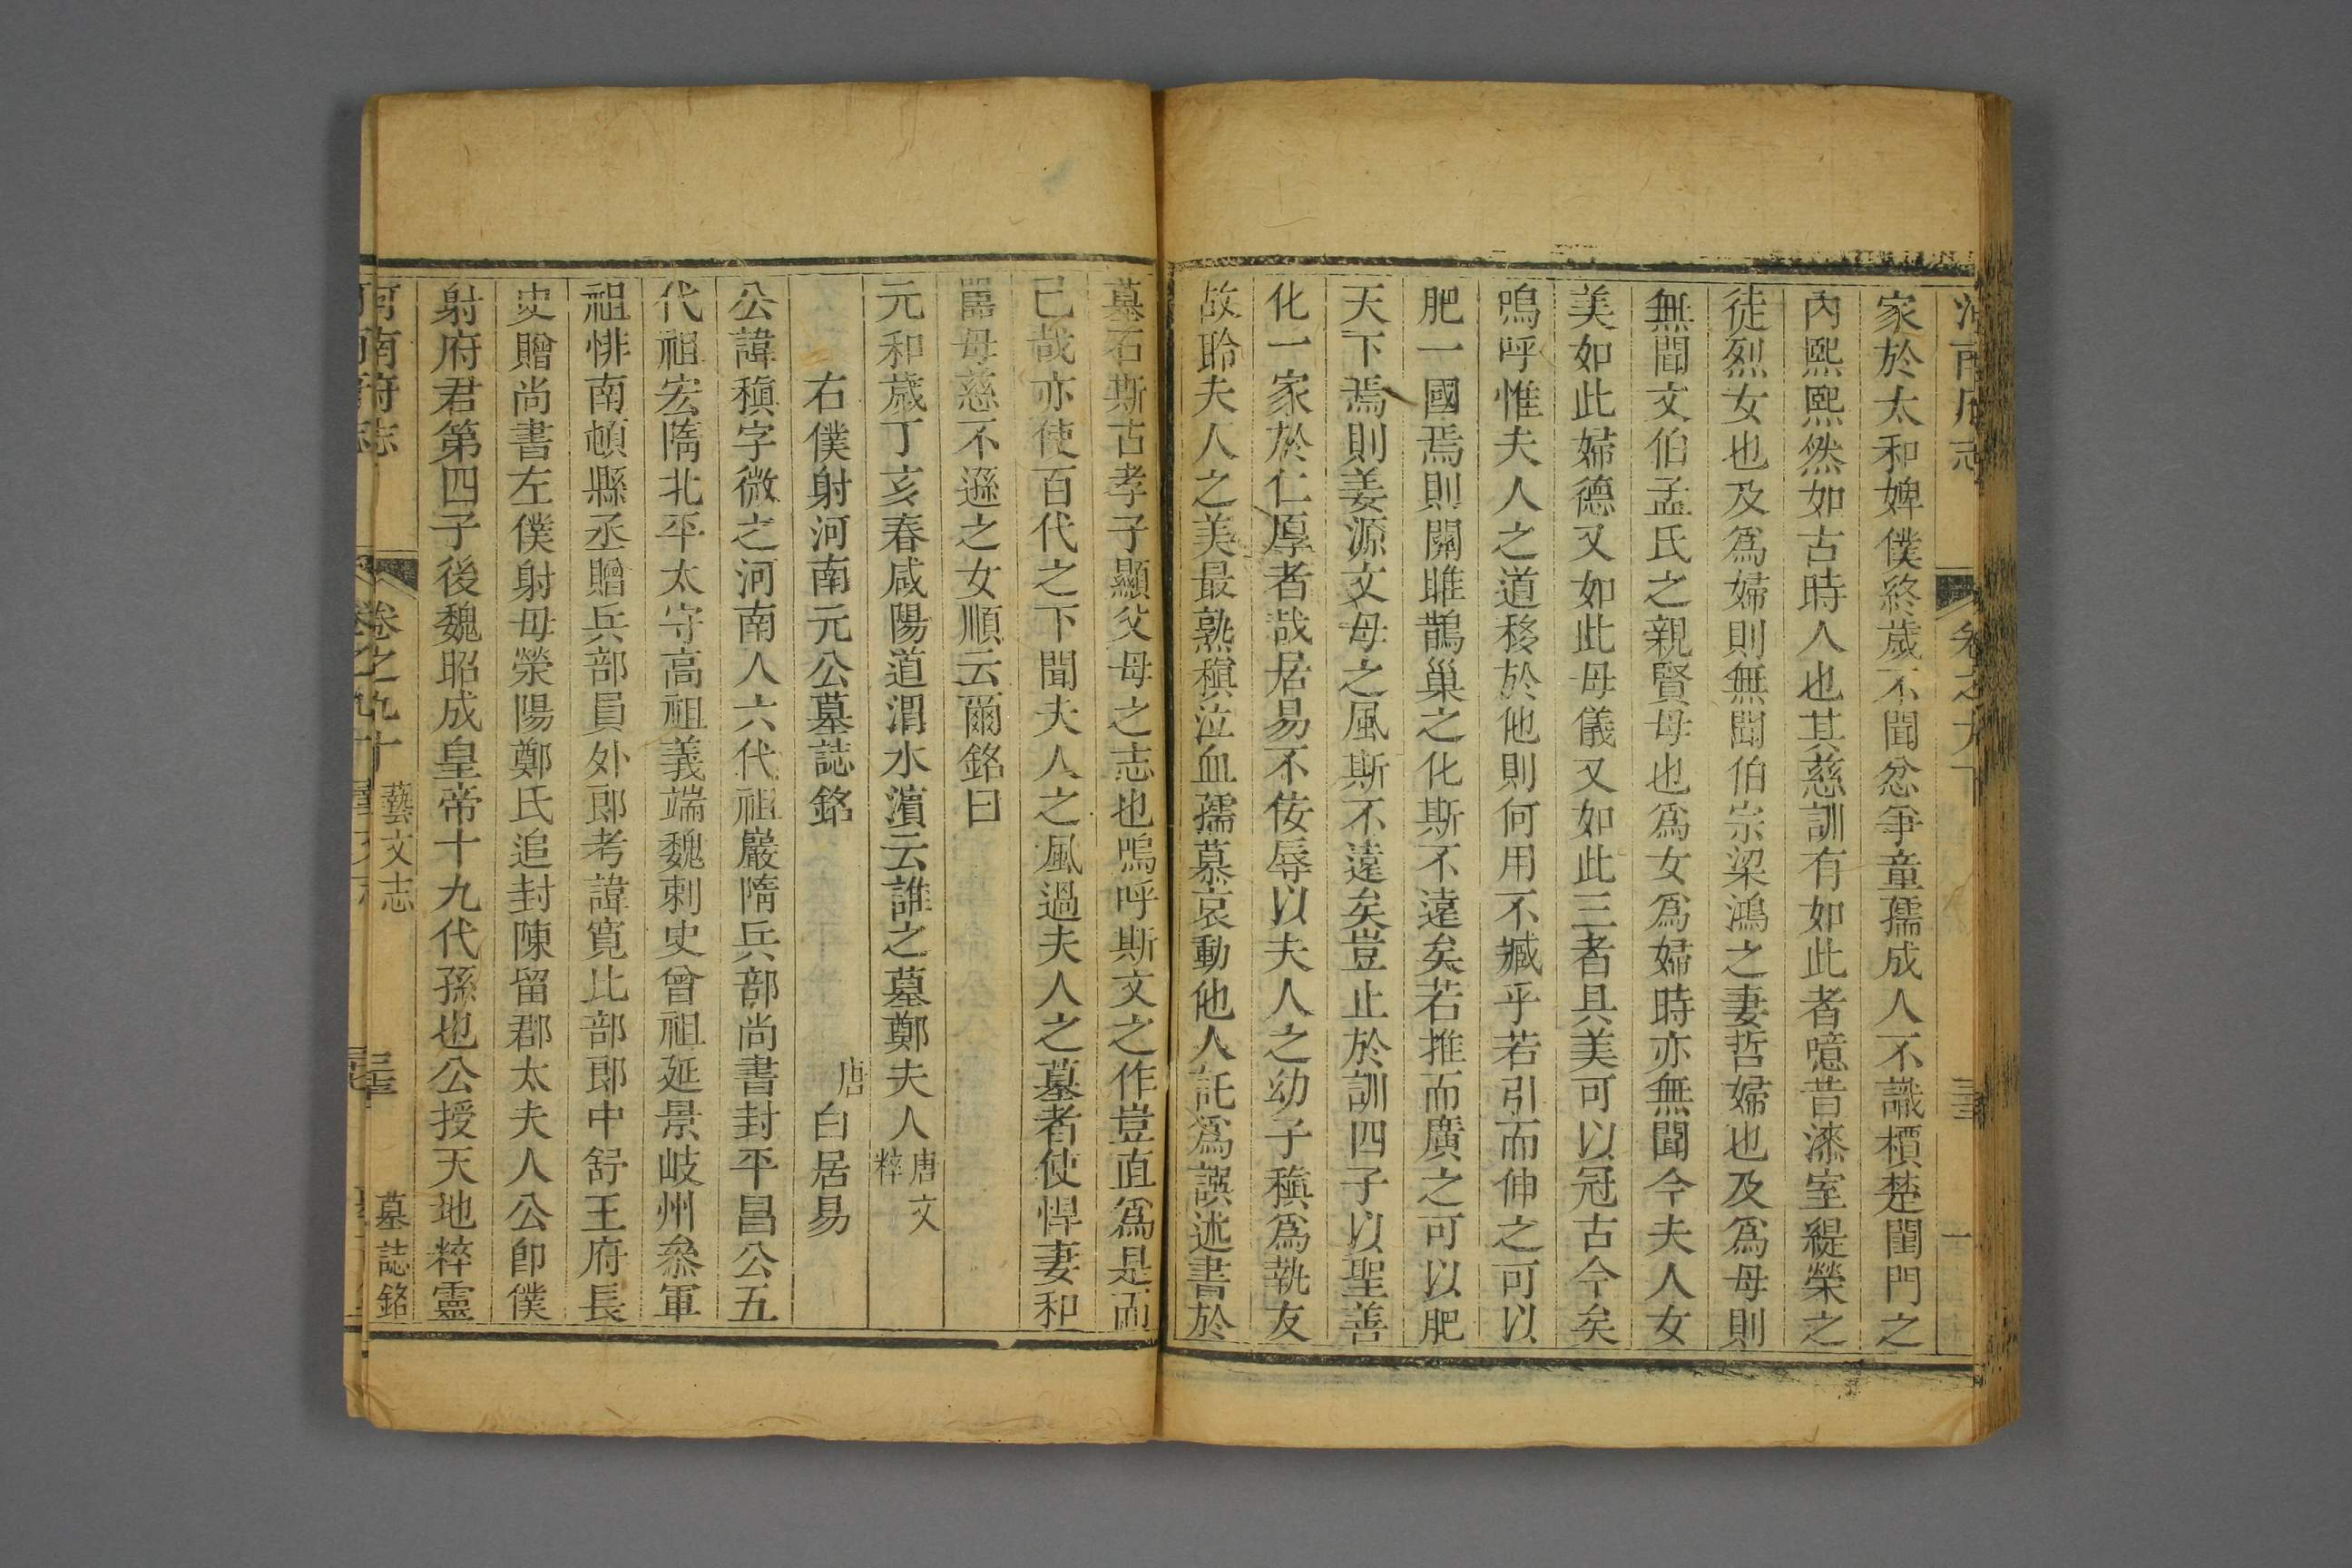 家於太和婢僕終歲不聞忿爭童孺成人不識檟楚閨門之
內熙熙然如古時人也其慈訓有如此者噫昔漆室緹榮之
徒烈女也及爲婦則無聞伯宗梁鴻之妻哲婦也及爲母則
無聞文伯孟氏之親賢母也爲女爲婦時亦無聞今夫人女
美如此婦德又如此母儀又如此三者具美可以冠古今矣
嗚呼惟夫人之道移於他則何用不臧乎若引而伸之可以
肥一國焉則關雎鵲巢之化斯不遠矣若推而廣之可以肥
天下焉則姜源文母之風斯不遠矣豈止於訓四子以聖善
化一家於仁厚者哉居易不佞辱以夫人之幼子稹爲執友
故聆夫人之美最熟稹泣血孺慕哀動他人託爲譔述書於
墓石斯古孝子顯父母之志也嗚呼斯文之作豈直爲是而
已哉亦使百代之下聞夫人之風過夫人之墓者使悍妻和
嚚母慈不遜之女順云爾銘曰
元和歲丁亥春咸陽道渭水濱云誰之墓鄭夫人 唐文粹
右僕射河南元公墓誌銘 唐 白居易
公諱稹字微之河南人六代祖巖隋兵部尚書封平昌公五
代祖宏隋北平太守高祖義端魏刺史曾祖延景岐州叅軍
祖悱南頓縣丞贈兵部員外郎考諱寬比部郎中舒王府長
史贈尚書左僕射母滎陽鄭氏追封陳留郡太夫人公卽僕
射府君第四子後魏昭成皇帝十九代孫也公授天地粹靈
河南府志 卷之九十 藝文志 墓誌銘